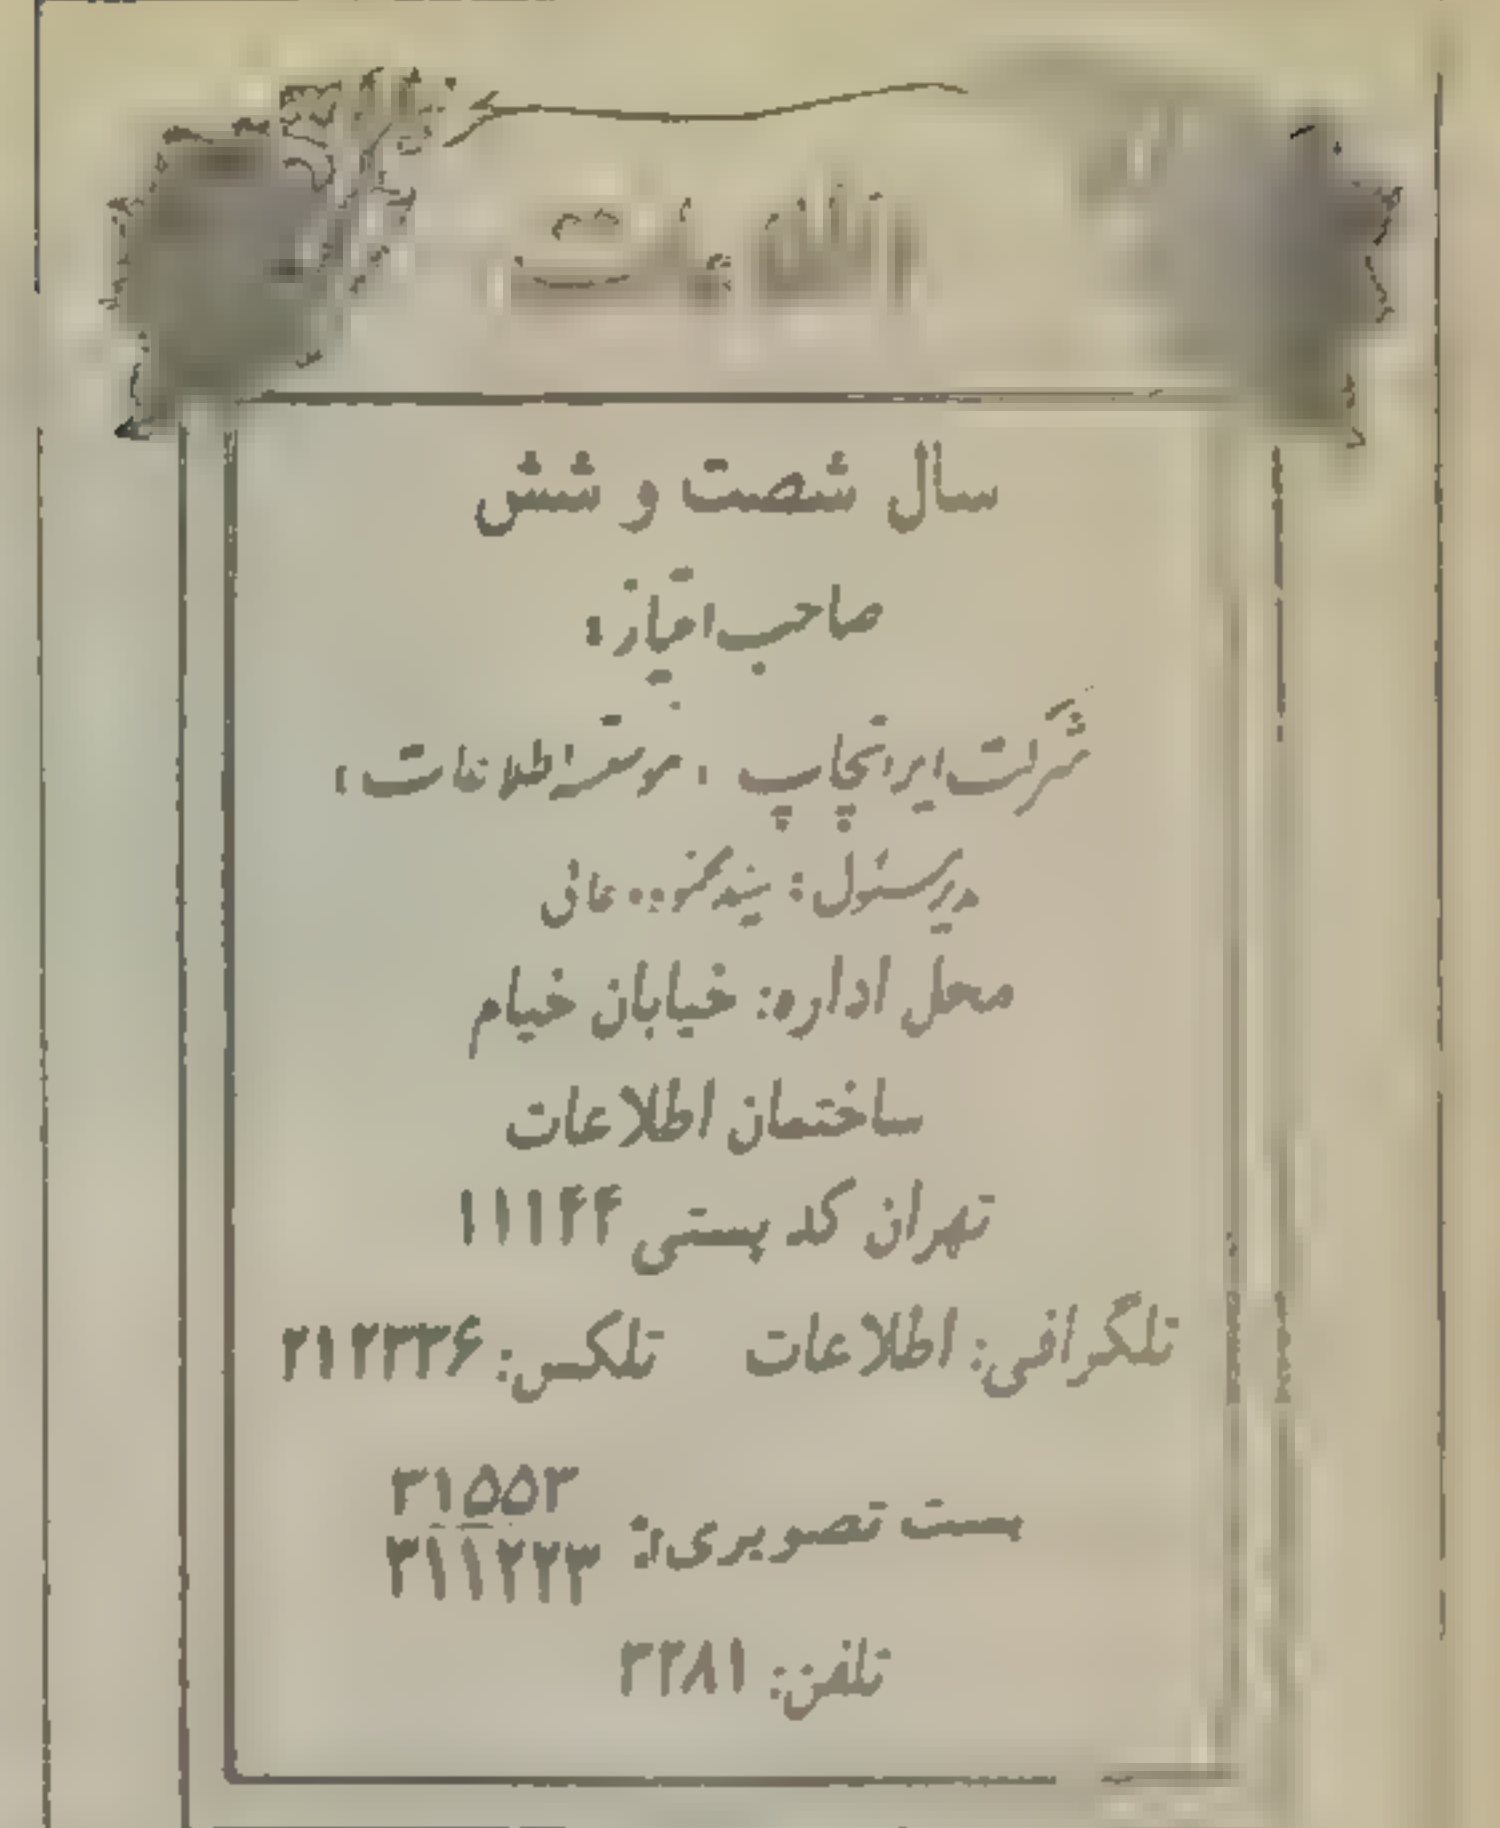 اطلاعات
سال شصت و شش
صاحب امتیاز:
شرکت ایرانچاپ ، موسسه اطلاعات ،
محل اداره: خیابان خیام
ساختمان اطلاعات
تهران کد پستی ۱۱۱۴۴
تلگرافی: اطلاعات تلکس: ۲۱۲۳۳۶
پست تصویری:
۳۱۵۵۳
۳۱۱۲۲۳
تلفن: ۳۲۸۱